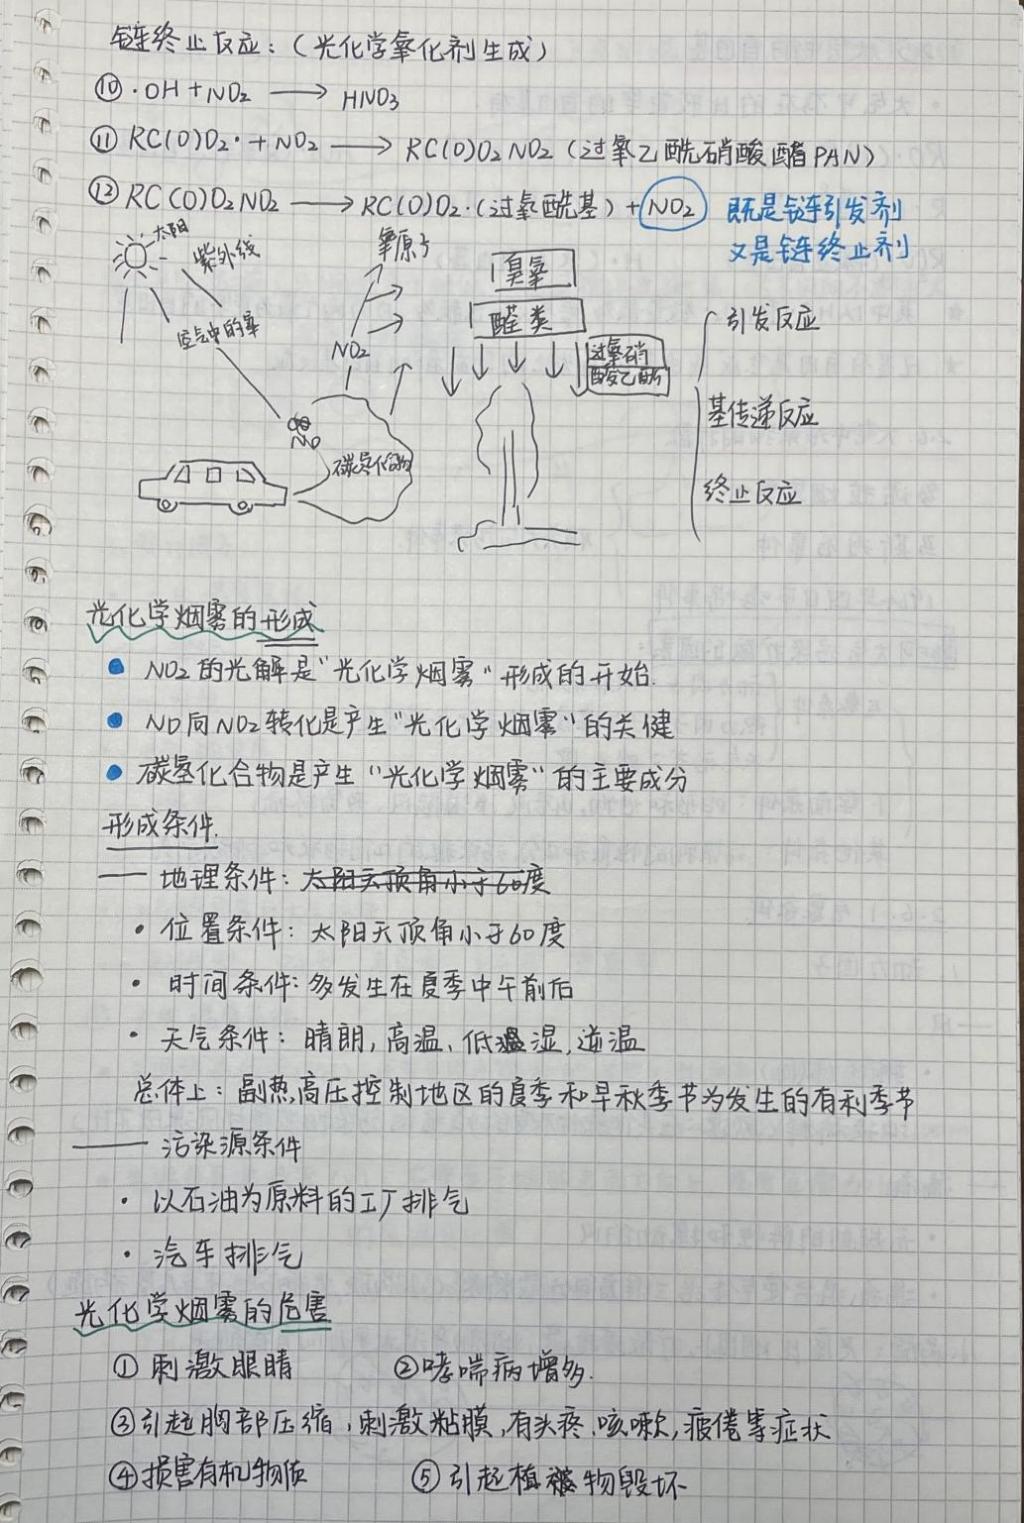 链终止反应：（光化学氧化剂生成）
⑩ ·OH + NO₂ ⟶ HNO₃
⑪ RC(O)O₂· + NO₂ ⟶ RC(O)O₂NO₂（过氧乙酰硝酸酯PAN）
⑫ RC(O)O₂NO₂ ⟶ RC(O)O₂·（过氧酰基）+ NO₂ 既是链引发剂
又是链终止剂
太阳
紫外线
空气中的氧
氧原子
NO₂
臭氧
醛类
过氧硝
酸乙酐
碳氢化合物
引发反应
基传递反应
终止反应
光化学烟雾的形成
NO₂的光解是“光化学烟雾”形成的开始.
NO向NO₂转化是产生“光化学烟雾”的关键
碳氢化合物是产生“光化学烟雾”的主要成分
形成条件.
—— 地理条件：太阳天顶角小于60度
· 位置条件：太阳天顶角小于60度
· 时间条件：多发生在夏季中午前后
· 天气条件：晴朗,高温、低湿,逆温
总体上：副热高压控制地区的夏季和早秋季节为发生的有利季节
—— 污染源条件
· 以石油为原料的工厂排气
· 汽车排气
光化学烟雾的危害
① 刺激眼睛 ②哮喘病增多.
③引起胸部压缩,刺激粘膜,有头疼.咳嗽,疲倦等症状
④损害有机物质 ⑤引起植物毁坏